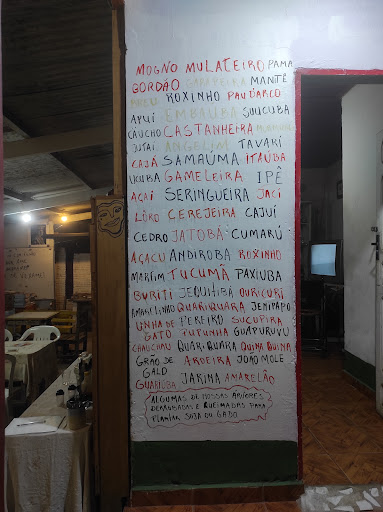 MOGNO MULATEIRO PAMA
GORDÃO GARAPEIRA MANTÊ
BREU ROXINHO PAU D'ARCO
APUÍ EMBAUBA SUUCUBA
CAUCHO CASTANHEIRA
JUTAÍ ANGELIM TAVARÍ
CAJÁ SAMAUMA ITAÚBA
UCUBA GAMELEIRA IPÊ
AÇAÍ SERINGUEIRA JACÍ
LÔRO CEREJEIRA CAJUÍ
CEDRO JATOBÁ CUMARÚ
AÇACU ANDIROBA ROXINHO
MARFIM TUCUMÃ PAXIUBA
BURITI JEQUITIBA OURICURI
AMARELINHO QUARIQUARA JENIPAPO
UNHA DE PEREIRO SUCUPIRA
GATO PUPUNHA GUAPURUVU
CHAUCHAU QUARIQUARA QUINA QUINA
GRÃO DE AROEIRA JOÃO MOLE
GALO
GUARIÚBA JARINA AMARELÃO
ALGUMAS DE NOSSAS ÁRVORES
DERRUBADAS E QUEIMADAS PARA
PLANTAR SOJA OU GADO